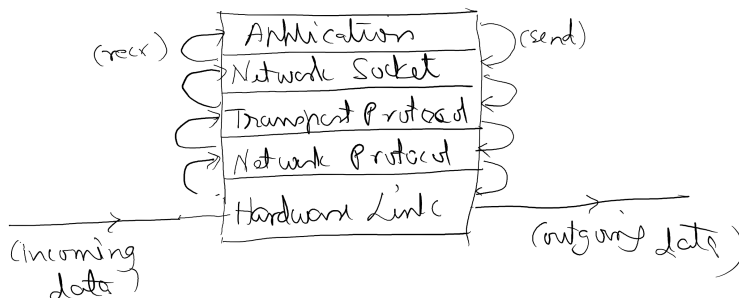 Application
(recv)
(send)
Network Socket
Transport Protocol
Network Protocol
Hardware Link
(incoming
data)
(outgoing data)